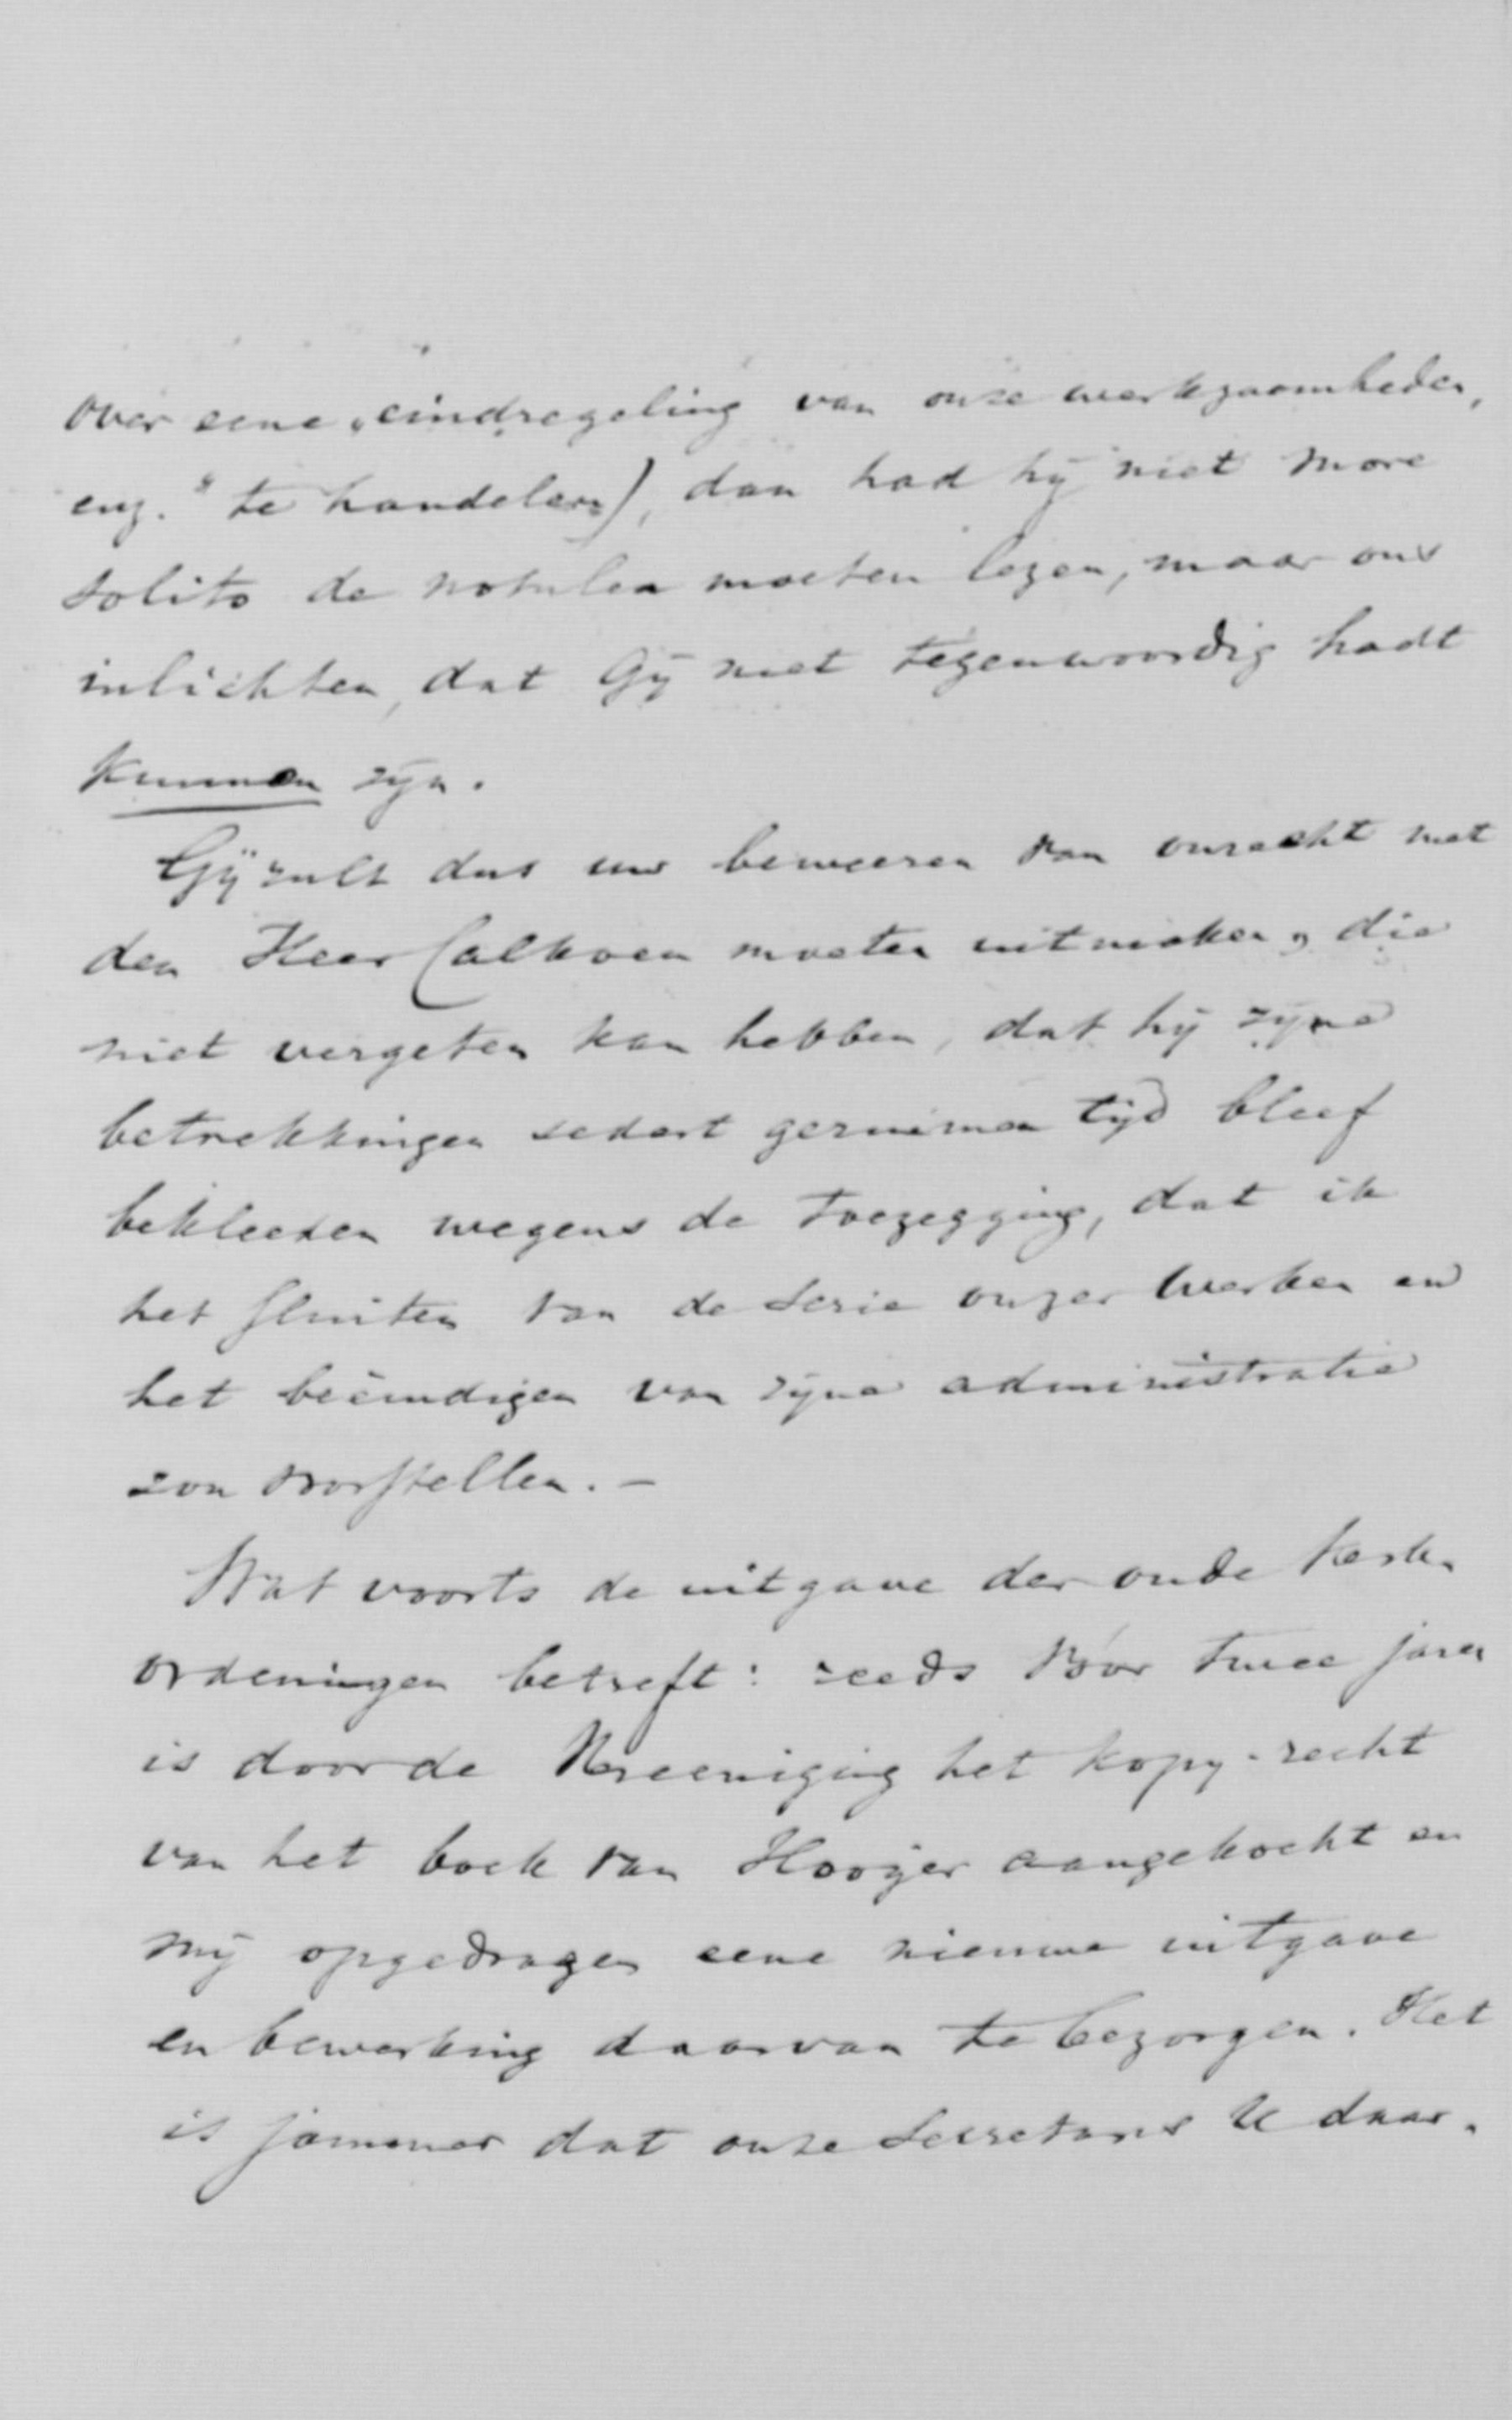 over eene „eindregeling van onze werkzaamheden,
enz." te handelen), dan had hij niet more
solito de notulen moeten lezen, maar ons
inlichten, dat Gij niet tegenwoordig hadt
kunnen zijn.
Gij zult dus uw beweeren van onrecht met
den Heer Calkoen moeten uitmaken, die
niet vergeten kan hebben, dat hij zijne
betrekkingen sedert geruimen tijd bleef
bekleeden wegens de toezegging, dat ik
het sluiten van de serie onzer werken en
het beëindigen van zijne administratie
zou voorstellen. —
Wat voorts de uitgave der oude Kerken
ordeningen betreft: reeds vóór twee jaren
is door de Vereeniging het kopy-recht
van het boek van Hooijer aangekocht en
mij opgedragen eene nieuwe uitgave
en bewerking daarvan te bezorgen. Het
is jammer dat onze Secretaris U daar-